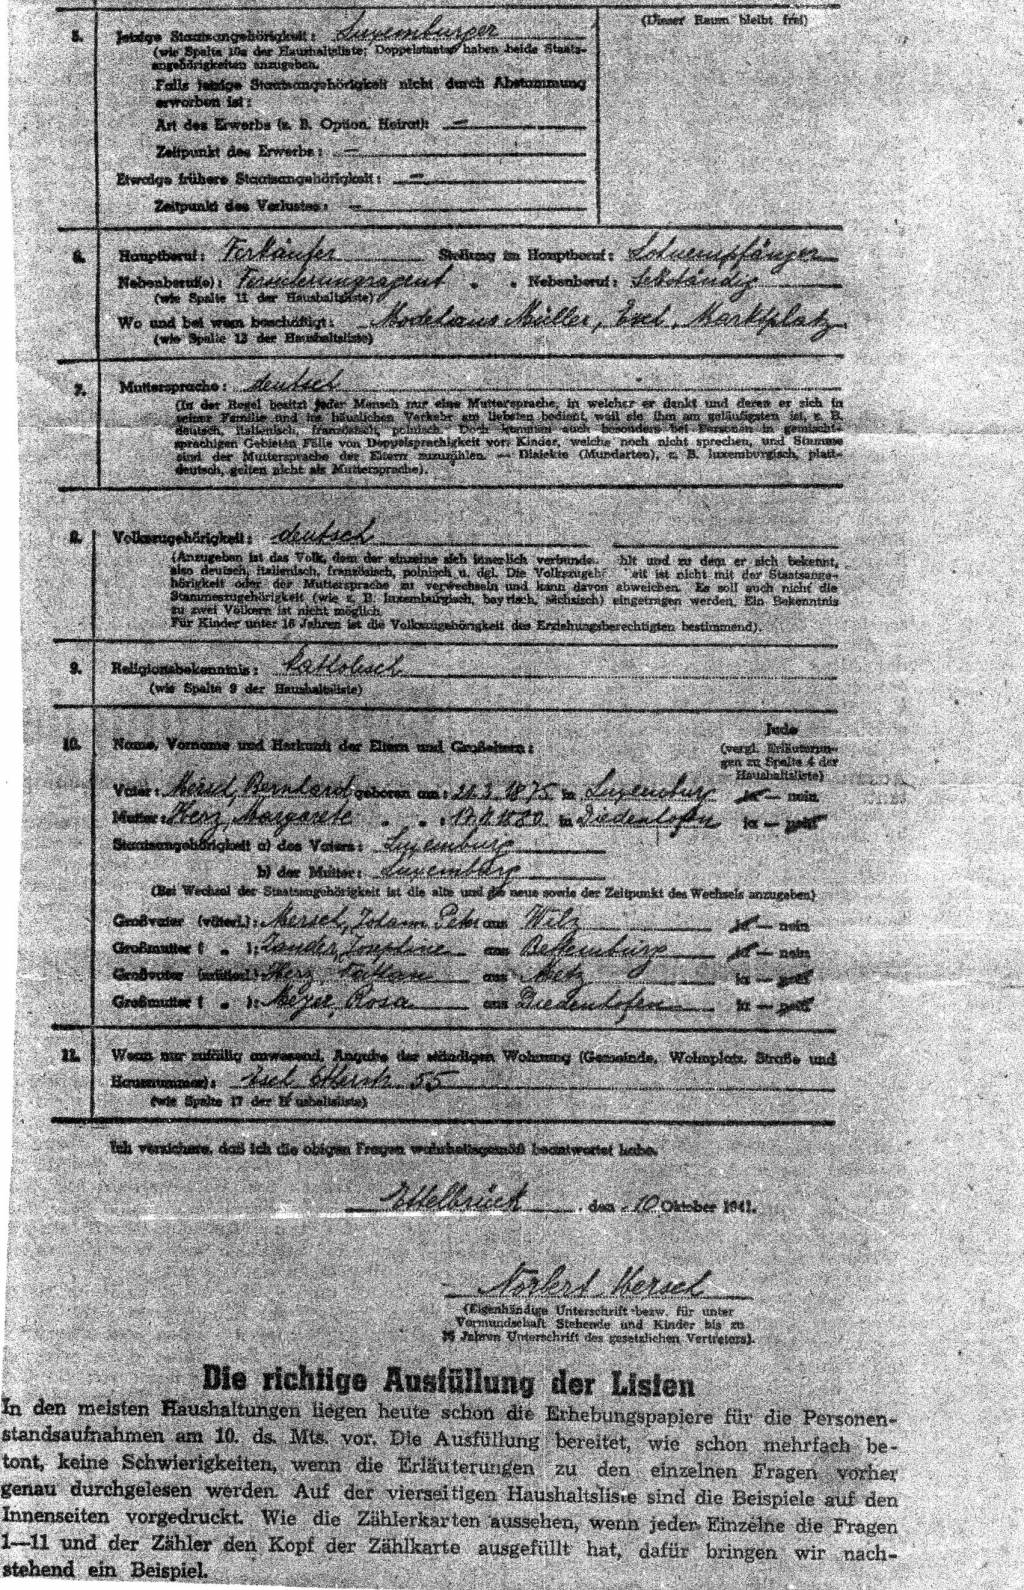 5. Jetzige Staatsangehörigkeit: Luxemburger
(Dieser Raum bleibt frei)
(wie Spalte 10a der Haushaltsliste; Doppelstaater haben beide Staats-
angehörigkeiten anzugeben.
Falls jetzige Staatsangehörigkeit nicht durch Abstammung
erworben ist:
Art des Erwerbs (z. B. Option, Heirat): —
Zeitpunkt des Erwerbs: —
Etwaige frühere Staatsangehörigkeit: —
Zeitpunkt des Verlustes: —
6. Hauptberuf: Verkäufer Stellung im Hauptberuf: Lohnempfänger
Nebenberuf(e): Versicherungsagent „ „ Nebenberuf: Selbständig
(wie Spalte 11 der Haushaltsliste)
Wo und bei wem beschäftigt: Modehaus Müller, Esch, Marktplatz
(wie Spalte 13 der Haushaltsliste)
7. Muttersprache: deutsch
(In der Regel besitzt jeder Mensch nur eine Muttersprache, in welcher er denkt und deren er sich in
seiner Familie und im häuslichen Verkehr am liebsten bedient, weil sie ihm am geläufigsten ist, z. B.
deutsch, italienisch, französisch, polnisch. Doch kommen auch besonders bei Personen in gemischt-
sprachigen Gebieten Fälle von Doppelsprachigkeit vor. Kinder, welche noch nicht sprechen, und Stumme
sind der Muttersprache der Eltern zuzuzählen. — Dialekte (Mundarten), z. B. luxemburgisch, platt-
deutsch, gelten nicht als Muttersprache).
8. Volkszugehörigkeit: deutsch
(Anzugeben ist das Volk, dem der einzelne sich innerlich verbunde. hlt und zu dem er sich bekennt,
also deutsch, italienisch, französisch, polnisch u. dgl. Die Volkszugehö eit ist nicht mit der Staatsange-
hörigkeit oder der Muttersprache zu verwechseln und kann davon abweichen. Es soll auch nicht die
Stammeszugehörigkeit (wie z. B. luxemburgisch, bayrisch, sächsisch) eingetragen werden. Ein Bekenntnis
zu zwei Völkern ist nicht möglich.
Für Kinder unter 16 Jahren ist die Volkszugehörigkeit des Erziehungsberechtigten bestimmend).
9. Religionsbekenntnis: katholisch
(wie Spalte 9 der Haushaltsliste)
Jude
10. Name, Vorname und Herkunft der Eltern und Großeltern:
(vergl. Erläuterun-
gen zu Spalte 4 der
Haushaltsliste)
Vater: Mersch, Bernhard geboren am: 21.3.1875 in Luxemburg ja — nein
Mutter: Herz, Margarete „ „ : 17.11.1880 in Diedenhofen ja — nein
Staatsangehörigkeit a) des Vaters: Luxemburg
b) der Mutter: Luxemburg
(Bei Wechsel der Staatsangehörigkeit ist die alte und die neue sowie der Zeitpunkt des Wechsels anzugeben)
Großvater (väterl.): Mersch, Johann Peter aus Wilz ja — nein
Großmutter ( „ ): Zander, Josephine aus Bettemburg ja — nein
Großvater (mütterl.): Herz, Nathan aus Metz ja — nein
Großmutter ( „ ): Meyer, Rosa aus Diedenhofen ja — nein
11. Wenn nur zufällig anwesend, Angabe der ständigen Wohnung (Gemeinde, Wohnplatz, Straße und
Hausnummer): Esch 55
(wie Spalte 17 der H ushaltsliste)
Ich versichere, daß ich die obigen Fragen wahrheitsgemäß beantwortet habe.
Ettelbrück, den 10 Oktober 1941.
Norbert Mersch
(Eigenhändige Unterschrift bezw. für unter
Vormundschaft Stehende und Kinder bis zu
16 Jahren Unterschrift des gesetzlichen Vertreters).
Die richtige Ausfüllung der Listen
In den meisten Haushaltungen liegen heute schon die Erhebungspapiere für die Personen-
standsaufnahmen am 10. ds. Mts. vor. Die Ausfüllung bereitet, wie schon mehrfach be-
tont, keine Schwierigkeiten, wenn die Erläuterungen zu den einzelnen Fragen vorher
genau durchgelesen werden. Auf der vierseitigen Haushaltsliste sind die Beispiele auf den
Innenseiten vorgedruckt. Wie die Zählerkarten aussehen, wenn jeder Einzelne die Fragen
1—11 und der Zähler den Kopf der Zählkarte ausgefüllt hat, dafür bringen wir nach-
stehend ein Beispiel.